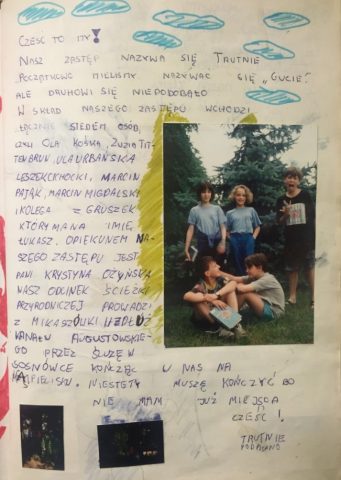 CZEŚĆ TO MY!
NASZ ZASTĘP NAZYWA SIĘ TRUTNIE
POCZĄTKOWO MIELIŚMY NAZYWAĆ SIĘ „GUCIE”
ALE DRUHOWI SIĘ NIEPODOBAŁO
W SKŁAD NASZEGO ZASTĘPU WCHODZI
ŁĄCZNIE SIEDEM OSÓB,
CZYLI OLA KOŚKA, ZUZIA TIT-
TENBRUN, ULA URBAŃSKA
LESZEK CICHOCKI, MARCIN
PAJĄK, MARCIN MIGDALSKI
I KOLEGA Z GRUSZEK
KTÓRY MANA IMIĘ
ŁUKASZ. OPIEKUNEM NA-
SZEGO ZASTĘPU JEST
PANI KRYSTYNA OŻYŃSKA
NASZ ODCINEK ŚCIEŻKI
PRZYRODNICZEJ PROWADZI
Z MIKASZÓWKI WZDŁUŻ
KANAŁU AUGUSTOWSKIE-
GO PRZEZ ŚLUZĘ W
SOSNÓWCE KOŃCZĄC U NAS NA
KĄPIELISKU. NIESTETY MUSZĘ KOŃCZYĆ BO
NIE MAM JUŻ MIEJSCA
CZEŚĆ!
TRUTNIE